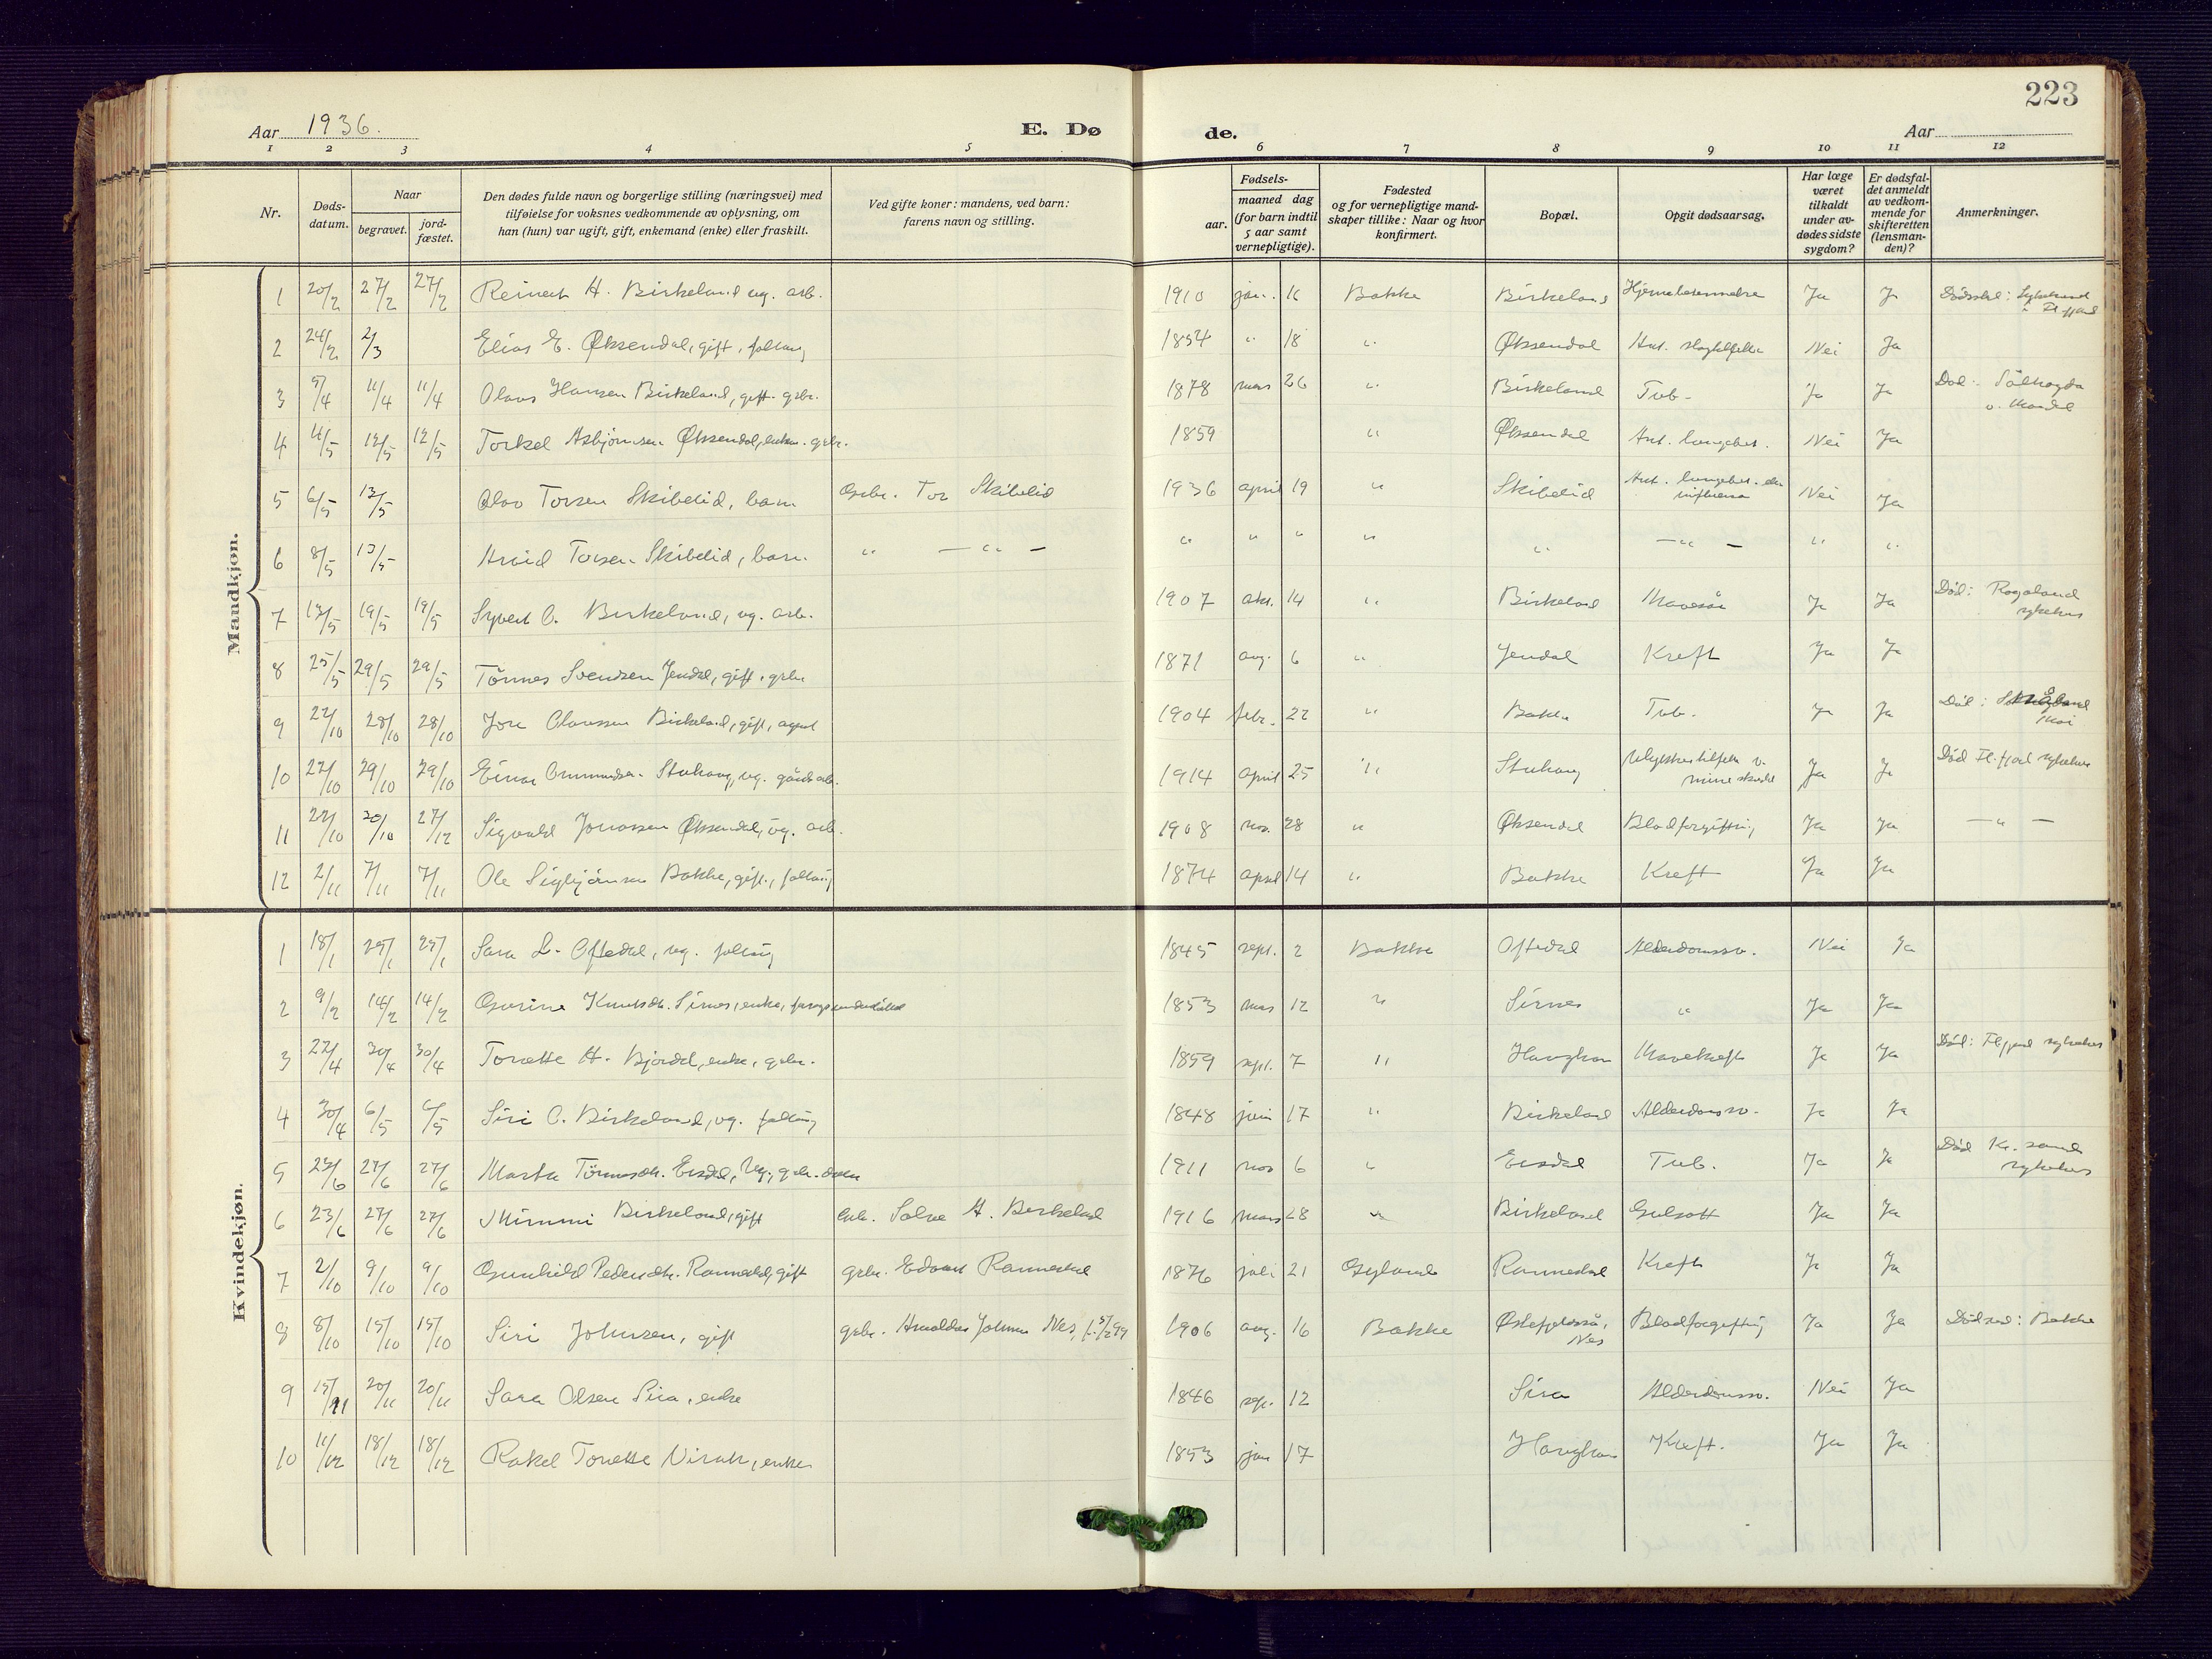 223
Aar 1936.
E. Dø
de.
Aar
1 2 3 4 5 6 7 8 9 10 11 12
Nr.
Døds-
datum.
Naar
begravet.
jord-
fæstet.
Den dødes fulde navn og borgerlige stilling (næringsvei) med
tilføielse for voksnes vedkommende av oplysning, om
han (hun) var ugift, gift, enkemand (enke) eller fraskilt.
Ved gifte koner: mandens, ved barn:
farens navn og stilling.
Fødsels-
aar.
maaned dag
(for barn indtil
5 aar samt
vernepligtige).
Fødested
og for vernepligtige mand-
skaper tillike: Naar og hvor
konfirmert.
Bopæl.
Opgit dødsaarsag.
Har læge
været
tilkaldt
under av-
dødes sidste
sygdom?
Er dødsfal-
det anmeldt
av vedkom-
mende for
skifteretten
(lensman-
den)?
Anmerkninger.
Mandkjøn.
1 20/2 27/2 27/2 Reinert H. Birkeland ug. arb. 1910 jan. 16 Bakke Birkeland Hjernebetennelse Ja Ja
2 24/2 2/3 Elias E. Øksendal, gift, 1854 " 18 " Øksendal Ant. slagtilfelle Nei Ja
3 5/4 11/4 11/4 Olaus Hansen Birkeland, gift. grbr. 1878 mars 26 " Birkeland Tub. Ja Ja Død:
4 4/5 12/5 12/5 Torkel Asbjørnsen Øksendal, enkem. grbr. 1859 " Øksendal Ant. lungebet. Nei Ja
5 6/5 13/5 Olav Torsen Skibelid, barn Grbr. Tor Skibelid 1936 april 19 " Skibelid Ant. lungebet. eller
influensa Nei Ja
6 8/5 13/5 Arvid Torsen Skibelid, barn. " — " — " " " " " — " — " "
7 13/5 19/5 19/5 Syvert O. Birkeland, ug. arb. 1907 okt. 14 " Birkeland Mavesår Ja Ja Død: Rogaland
sykehus
8 25/5 29/5 29/5 Tønnes Svendsen Jendal, gift, grbr. 1871 aug. 6 " Jendal Kreft Ja Ja
9 22/10 28/10 28/10 Jøren Olaussen Birkeland, gift, agent 1904 febr. 22 " Bakke Tub. Ja Ja Død:
10 22/10 29/10 29/10 Einar Stuhaug, ug. gårdsarb. 1914 april 25 " Stuhaug Ulykkestilfelle v.
mineskudd Ja Ja Død Fl.fjord sykehus
11 22/10 30/10 27/12 Sigvald Jonassen Øksendal, ug. arb. 1908 nov. 28 " Øksendal Blodforgiftning Ja Ja — " —
12 2/11 7/11 7/11 Ole Sigbjørnsen Bakke, gift, 1874 april 14 " Bakke Kreft Ja Ja
Kvindekjøn.
1 18/1 25/1 25/1 Sara L. Oftedal, ug. 1845 sept. 2 Bakke Oftedal Alderdomssv. Nei Ja
2 9/2 14/2 14/2 Gurine Knutsdtr. Sirnes, enke, 1853 mars 12 " Sirnes " Ja Ja
3 22/4 30/4 30/4 Tonette H. Bjordal, enke, grbr. 1859 sept. 7 " Haughom Mavekreft Ja Ja Død: Fl.fjord sykehus
4 30/4 6/5 6/5 Siri O. Birkeland, ug. 1848 juni 17 " Birkeland Alderdomssv. Ja Ja
5 23/6 27/6 27/6 Marta Tønnesdtr. Eisdal, ug., grbr. datter 1911 nov 6 " Eisdal Tub. Ja Ja Død Kr. sand
sykehus
6 23/6 27/6 27/6 Mimmi Birkeland, gift Salve A. Birkeland 1916 mars 28 " Birkeland Gulsott Ja Ja
7 2/10 9/10 9/10 Gunhild Pedersdtr. Rannestad, gift grbr. Edvart Rannestad 1876 juli 21 Gyland Rannestad Kreft Ja Ja
8 8/10 15/10 15/10 Siri Johnsen, gift grbr. Arnoldus Johnsen Nes, 1906 aug. 16 Bakke
Nes Blodforgiftning Ja Ja Dødssted: Bakke
9 15/11 20/11 20/11 Sara Olsen Sira, enke 1846 sept. 12 Sira Alderdomssv. Nei Ja
10 11/12 18/12 18/12 Rakel Tonette Virak, enke 1853 jan 17 Haughom Kreft. Ja Ja